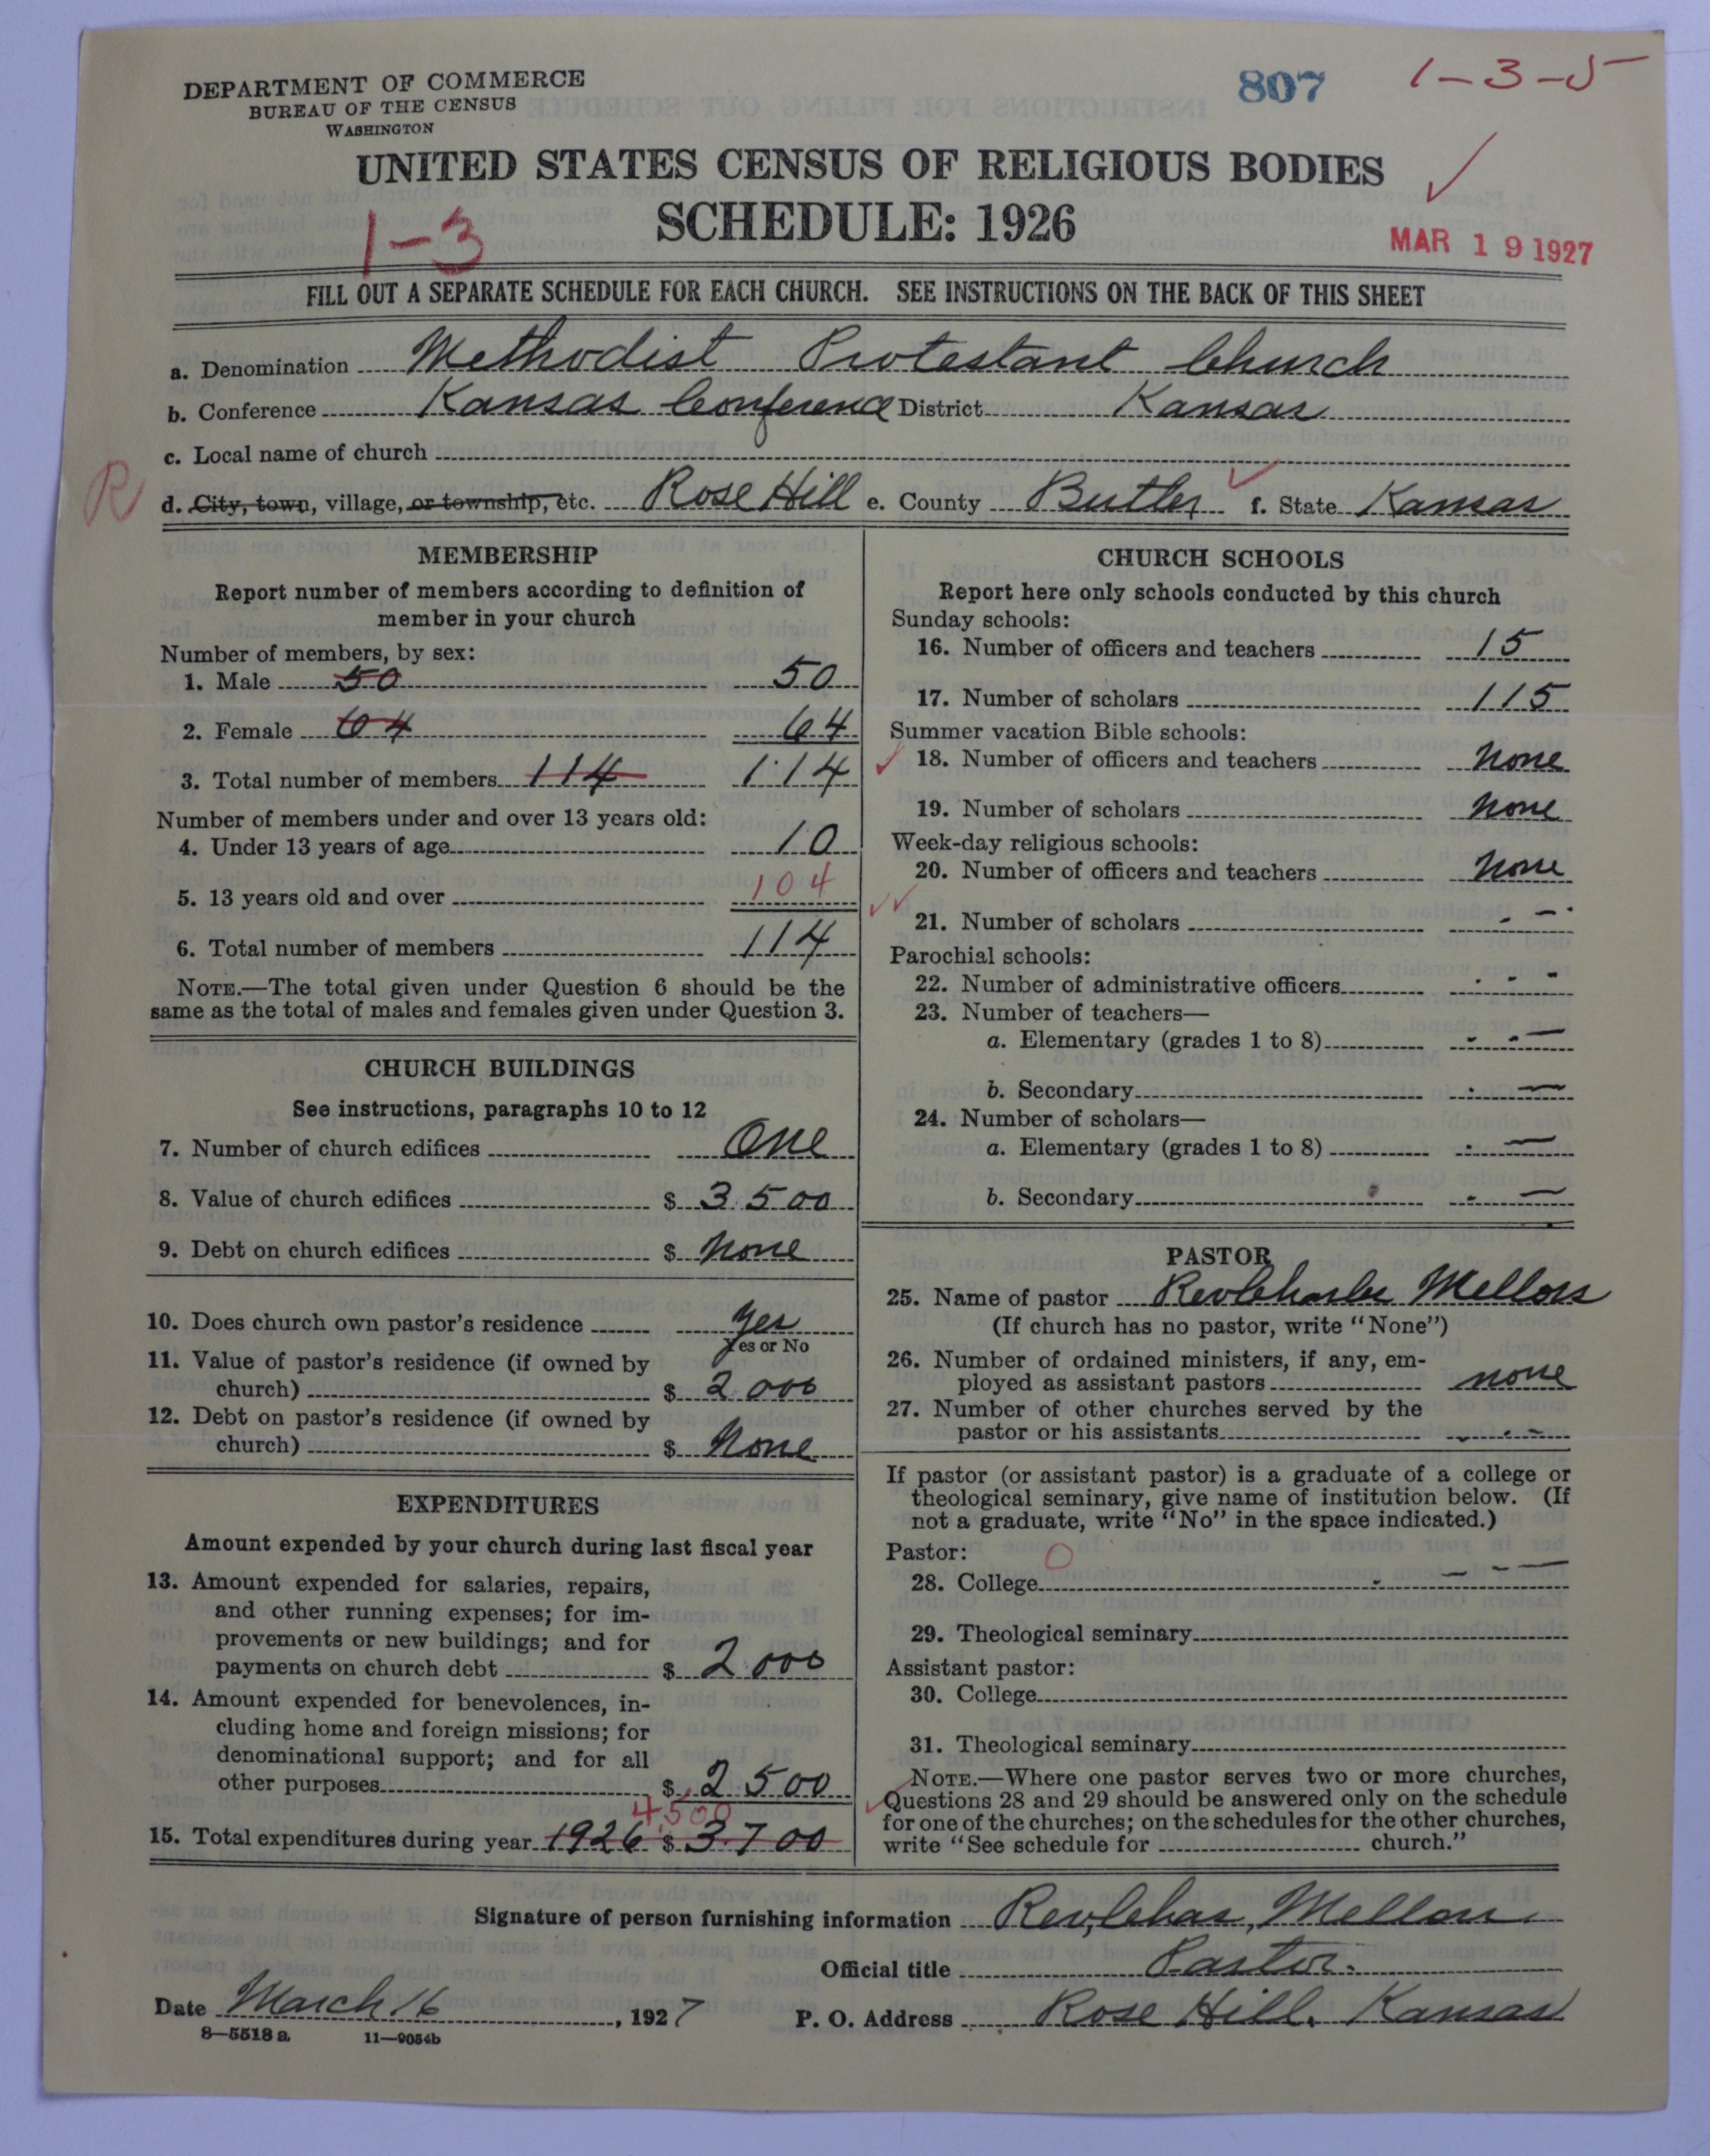 DEPARTMENT OF COMMERCE
BUREAU OF THE CENSUS
WASHINGTON
807
1-3-5
UNITED STATES CENSUS OF RELIGIOUS BODIES
SCHEDULE: 1926
1-3
MAR 19 1927
FILL OUT A SEPARATE SCHEDULE FOR EACH CHURCH. SEE INSTRUCTIONS ON THE BACK OF THIS SHEET
a. Denomination Methodist Protestant Church
b. Conference Kansas Conference District Kansas
c. Local name of church
R
d. City, town, village, or township, etc. Rose Hill e. County Butler f. State Kansas
MEMBERSHIP
Report number of members according to definition of
member in your church
Number of members, by sex:
1. Male 50 50
2. Female 64 64
3. Total number of members 114 114
Number of members under and over 13 years old:
4. Under 13 years of age 10
5. 13 years old and over 104
6. Total number of members 114
NOTE.—The total given under Question 6 should be the
same as the total of males and females given under Question 3.
CHURCH BUILDINGS
See instructions, paragraphs 10 to 12
7. Number of church edifices One
8. Value of church edifices $ 3500
9. Debt on church edifices $ None
10. Does church own pastor's residence Yes
Yes or No
11. Value of pastor's residence (if owned by
church) $ 2000
12. Debt on pastor's residence (if owned by
church) $ None
EXPENDITURES
Amount expended by your church during last fiscal year
13. Amount expended for salaries, repairs,
and other running expenses; for im-
provements or new buildings; and for
payments on church debt $ 2000
14. Amount expended for benevolences, in-
cluding home and foreign missions; for
denominational support; and for all
other purposes $ 2500
4500
15. Total expenditures during year 1926 $ 3700
CHURCH SCHOOLS
Report here only schools conducted by this church
Sunday schools:
16. Number of officers and teachers 15
17. Number of scholars 115
Summer vacation Bible schools:
18. Number of officers and teachers None
19. Number of scholars None
Week-day religious schools:
20. Number of officers and teachers None
21. Number of scholars - -
Parochial schools:
22. Number of administrative officers - - -
23. Number of teachers—
a. Elementary (grades 1 to 8) - - —
b. Secondary - —
24. Number of scholars—
a. Elementary (grades 1 to 8) - —
b. Secondary - —
PASTOR
25. Name of pastor Rev Charles Mellors
(If church has no pastor, write "None")
26. Number of ordained ministers, if any, em-
ployed as assistant pastors none
27. Number of other churches served by the
pastor or his assistants - - -
If pastor (or assistant pastor) is a graduate of a college or
theological seminary, give name of institution below. (If
not a graduate, write "No" in the space indicated.)
Pastor: O
28. College - - - —
29. Theological seminary
Assistant pastor:
30. College
31. Theological seminary
NOTE.—Where one pastor serves two or more churches,
Questions 28 and 29 should be answered only on the schedule
for one of the churches; on the schedules for the other churches,
write "See schedule for church."
Signature of person furnishing information Rev. Chas. Mellors
Official title Pastor.
Date March 16, 1927 P. O. Address Rose Hill, Kansas
8—5518 a 11—9054b